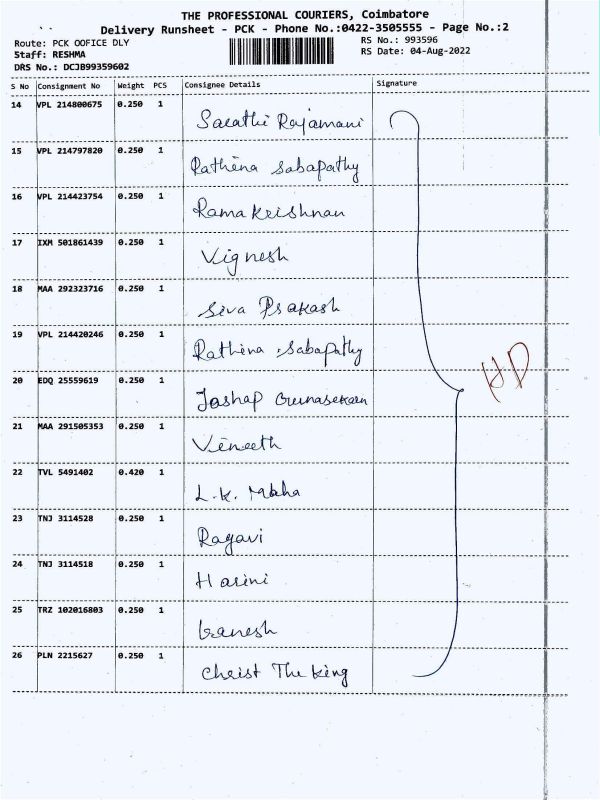 THE PROFESSIONAL COURIERS, Coimbatore
Delivery Runsheet - PCK - Phone No.:0422-3505555 - Page No.:2
Route: PCK OOFICE DLY
RS No.: 993596
Staff: RESHMA
RS Date: 04-Aug-2022
DRS No.: DCJB99359602
S No Consignment No Weight PCS Consignee Details Signature
14 VPL 214800675 0.250 1 Sarathi Rajamani
15 VPL 214797820 0.250 1 Rathina Sabapathy
16 VPL 214423754 0.250 1 Rama Krishnan
17 IXM 501861439 0.250 1 Vignesh
18 MAA 292323716 0.250 1 Siva Prakash
19 VPL 214420246 0.250 1 Rathina Sabapathy
HD
20 EDQ 25559619 0.250 1 Joshap Gunasekaran
21 MAA 291505353 0.250 1 Vineeth
22 TVL 5491402 0.420 1 L.K.
23 TNJ 3114528 0.250 1 Ragavi
24 TNJ 3114518 0.250 1 Harini
25 TRZ 102016803 0.250 1 Ganesh
26 PLN 2215627 0.250 1 Christ The King